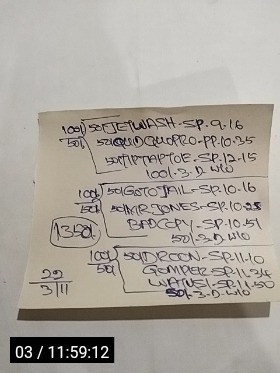 100/ 50/ JETWASH-SP.9.16
50/ 50/ QUIDQUOPRO-PP.10.35
50/ TIPTAPTOE-SP.12-15
100/.3.D.W/O
100/ 50/ GOTOJAIL-SP.10-16
50/ 50/ MRJONES-SP.10-25
BADCOPY-SP.10.51
50/-3-D.W/O
1350/
100/ 50/ DROON-SP.11-10
50/ GOMPER-SP.11-34
WATUSI-SP.11-50
50/-3-D-W/O
22
3/11
03 / 11:59:12